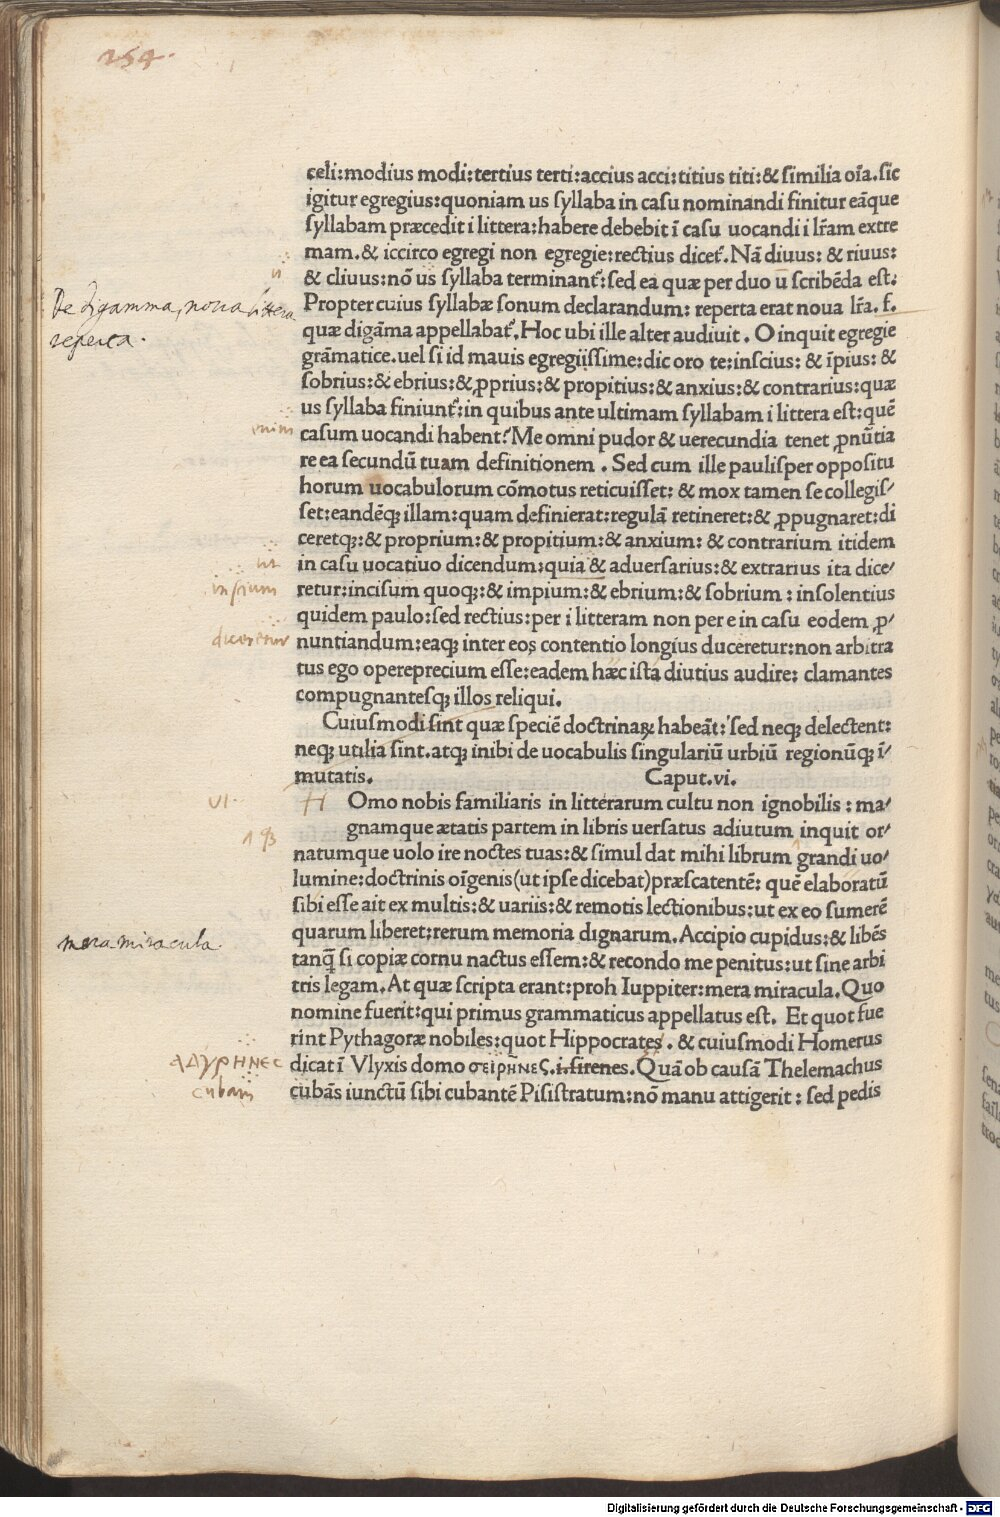 254.
celi:modius modi:tertius terti:accius acci:titius titi:& ſimilia oīa.ſic
igitur egregius:quoniam us ſyllaba in caſu nominandi finitur eāque
ſyllabam præcedit i littera:habere debebit ī caſu uocandi i lr̄am extre
mam.& iccirco egregi non egregie:rectius dicet᷑.Nā diuus:& riuus:
ii
& cliuus:nō us ſyllaba terminant᷑:ſed ea quæ per duo u ſcribēda eſt:
De digamma, noua littera
reperta.
Propter cuius ſyllabæ ſonum declarandum: reperta erat noua lr̄a.f.
quæ digāma appellabat᷑.Hoc ubi ille alter audiuit. O inquit egregie
grāmatice.uel ſi id mauis egregiiſſime:dic oro te:inſcius: & īpius: &
ſobrius:& ebrius:& ꝓprius:& propitius:& anxius:& contrarius:quæ
us ſyllaba finiunt᷑:in quibus ante ultimam ſyllabam i littera eſt:quē
enim
caſum uocandi habent?Me omni pudor & uerecundia tenet ꝓnūtia
re ea ſecundū tuam definitionem. Sed cum ille pauliſper oppoſitu
horum uocabulorum cōmotus reticuiſſet: & mox tamen ſe collegiſ/
ſet:eandēq; illam:quam definierat:regulā retineret:& ꝓpugnaret:di
ceretq;:& proprium:& propitium:& anxium: & contrarium itidem
ut
in caſu uocatiuo dicendum:quia & aduerſarius:& extrarius ita dice/
inscium
retur:inciſum quoq;:& impium:& ebrium:& ſobrium: inſolentius
quidem paulo:ſed rectius:per i litteram non per e in caſu eodem ꝓ/
duceretur
nuntiandum:eaq; inter eos contentio longius duceretur:non arbitra
tus ego opereprecium eſſe:eadem hæc iſta diutius audire: clamantes
compugnanteſq; illos reliqui.
Cuiuſmodi ſint quæ ſpeciē doctrinaꝝ habeāt: ſed neq; delectent:
neq; utilia ſint.atq; inibi de uocabulis ſingulariū urbiū regionūq; ī/
mutatis. Caput.vi.
VI.
H Omo nobis familiaris in litterarum cultu non ignobilis: ma/
gnamque ætatis partem in libris uerſatus adiutum inquit or/
natumque uolo ire noctes tuas:& ſimul dat mihi librum grandi uo/
lumine:doctrinis oīgenis(ut ipſe dicebat)præſcatentē: quē elaboratū
ſibi eſſe ait ex multis:& uariis:& remotis lectionibus:ut ex eo ſumerē
mera miracula
quarum liberet:rerum memoria dignarum.Accipio cupidus:& libēs
tanq̄ ſi copiæ cornu nactus eſſem:& recondo me penitus:ut ſine arbi
tris legam.At quæ ſcripta erant:proh Iuppiter:mera miracula.Quo
nomine fuerit:qui primus grammaticus appellatus eſt. Et quot fue
rint Pythagoræ nobiles:quot Hippocrates. & cuiuſmodi Homerus
dicat ī Vlyxis domo σειρηνες.i.ſirenes.Quā ob cauſā Thelemachus
cubans
cubās iunctū ſibi cubantē Piſiſtratum:nō manu attigerit: ſed pedis
Digitalisierung gefördert durch die Deutsche Forschungsgemeinschaft - DFG